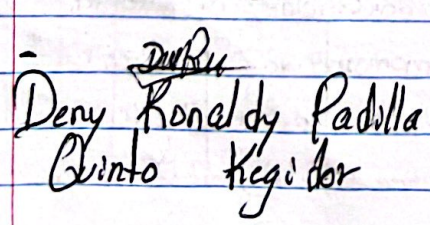 - Deny Ronaldy Padilla
Quinto Regidor